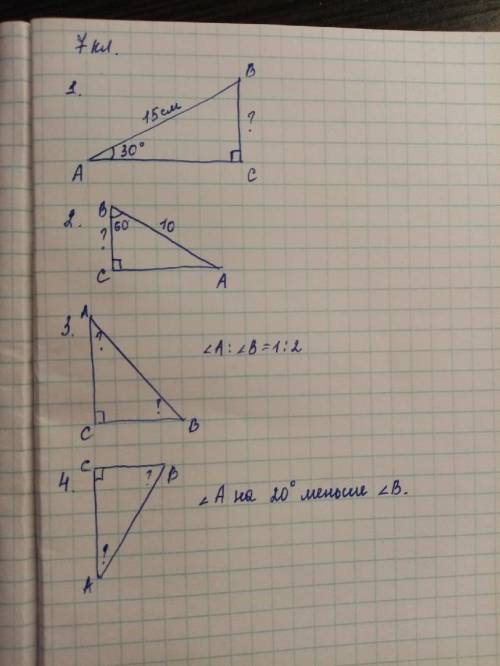 7 кл.
1.
B
15 см
?
30°
A
C
2.
B
60
10
?
C
A
3.
A
?
∠A:∠B=1:2
?
C
B
4.
C
?
B
∠A на 20° меньше ∠B.
?
A